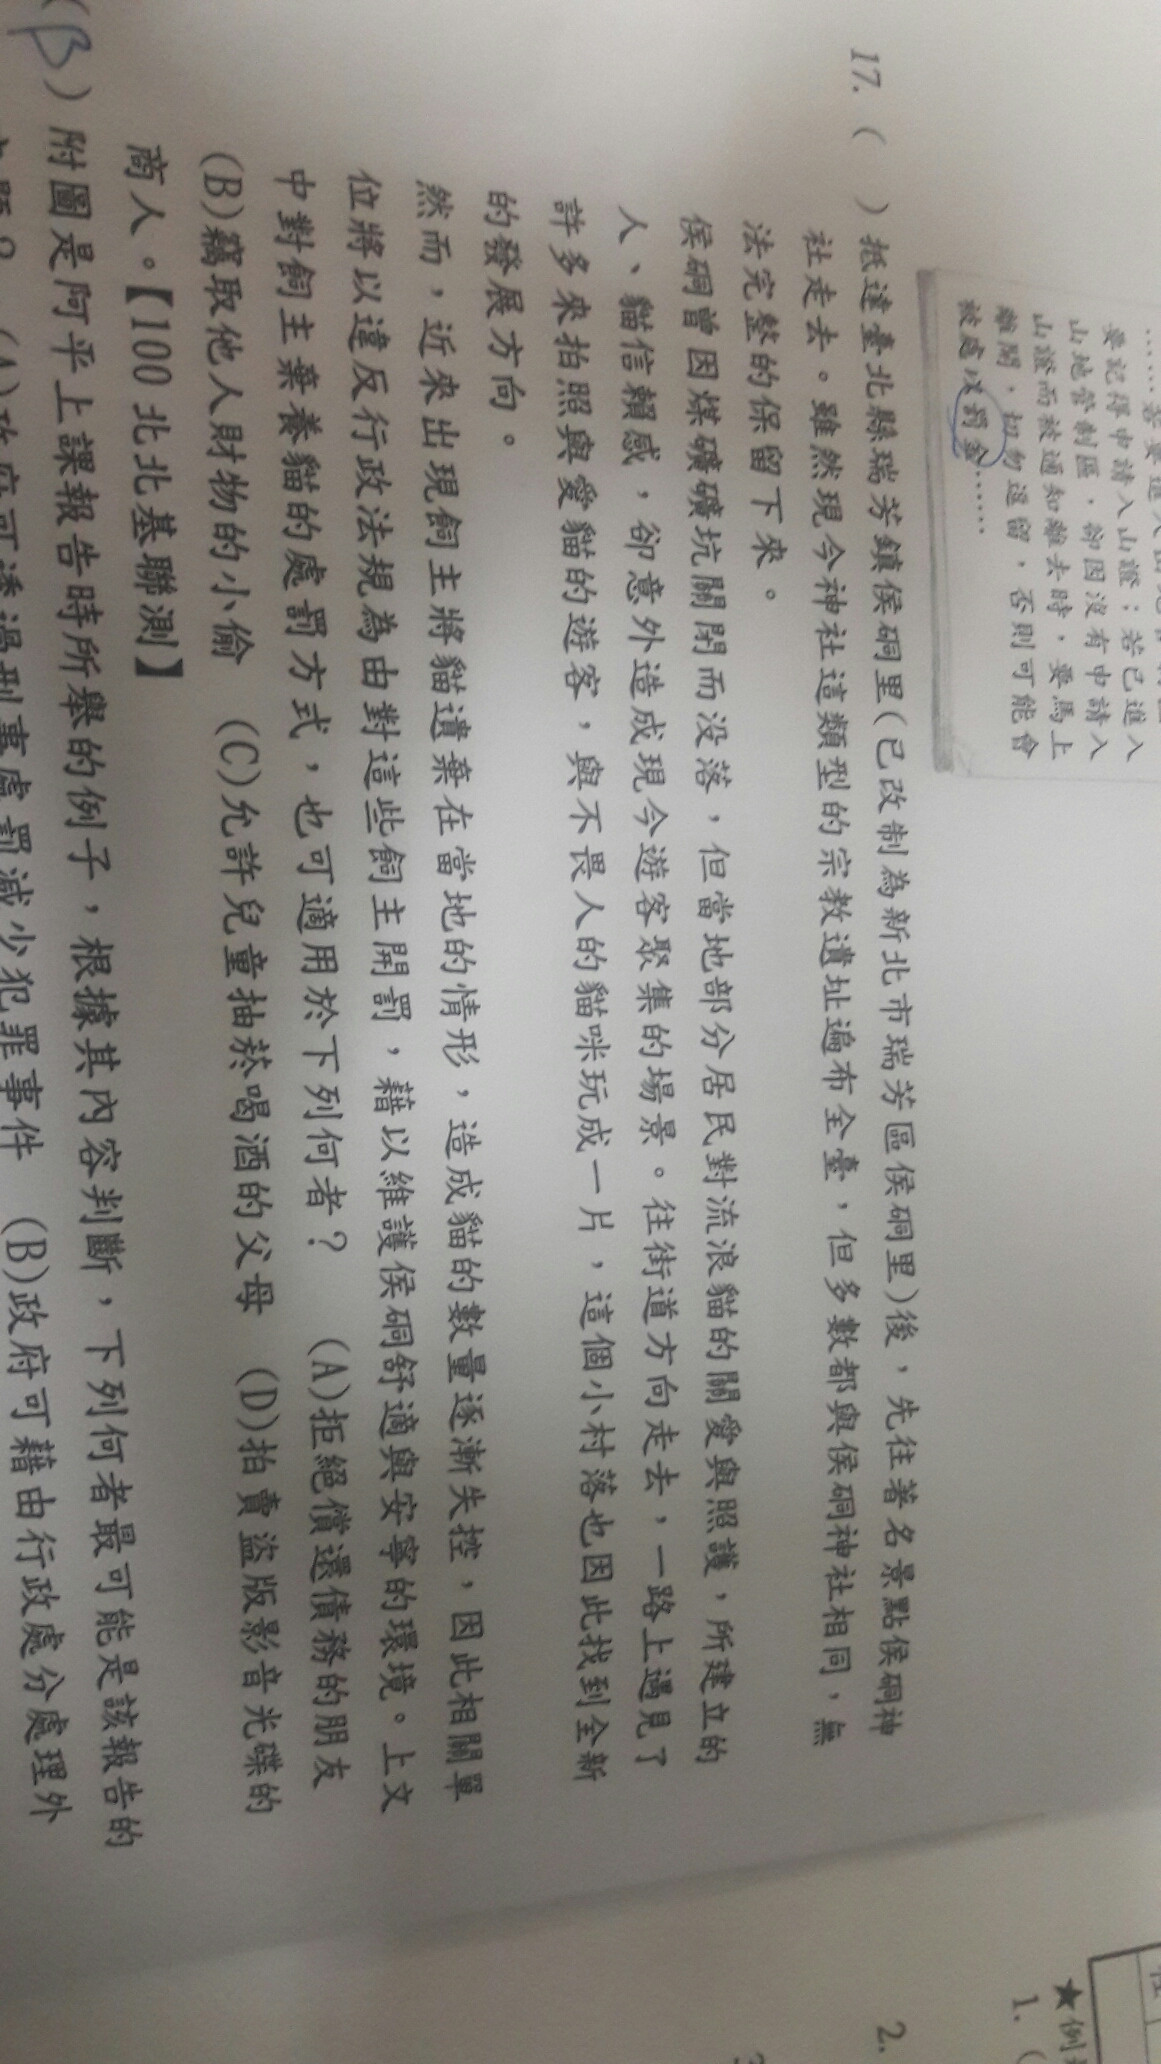 要記得申請入山證；若已進入
山地管制區，卻因沒有申請入
山證而被通知離去時，要馬上
離開，切勿逗留，否則可能會
被處以罰金……
17. (　) 抵達臺北縣瑞芳鎮侯硐里(已改制為新北市瑞芳區侯硐里)後，先往著名景點侯硐神
社走去。雖然現今神社這類型的宗教遺址遍布全臺，但多數都與侯硐神社相同，無
法完整的保留下來。
侯硐曾因煤礦礦坑關閉而沒落，但當地部分居民對流浪貓的關愛與照護，所建立的
人、貓信賴感，卻意外造成現今遊客聚集的場景。往街道方向走去，一路上遇見了
許多來拍照與愛貓的遊客，與不畏人的貓咪玩成一片，這個小村落也因此找到全新
的發展方向。
然而，近來出現飼主將貓遺棄在當地的情形，造成貓的數量逐漸失控，因此相關單
位將以違反行政法規為由對這些飼主開罰，藉以維護侯硐舒適與安寧的環境。上文
中對飼主棄養貓的處罰方式，也可適用於下列何者？ (A)拒絕償還債務的朋友
(B)竊取他人財物的小偷 (C)允許兒童抽菸喝酒的父母 (D)拍賣盜版影音光碟的
商人。【100 北北基聯測】
(B) 附圖是阿平上課報告時所舉的例子，根據其內容判斷，下列何者最可能是該報告的
(A)政府可透過刑事處罰減少犯罪事件 (B)政府可藉由行政處分處理外
★例
1. (
2.